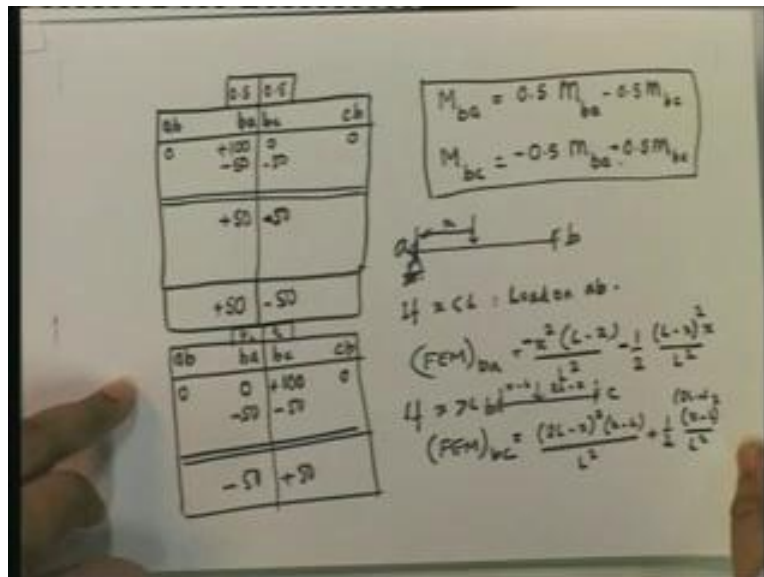 0.5 0.5
ab ba bc cb
0 +100 0 0
-50 -50
+50 -50
+50 -50
ab ba bc cb
0 0 +100 0
-50 -50
-50 +50
M_ba = 0.5 m_ba - 0.5 m_bc
M_bc = -0.5 m_ba + 0.5 m_bc
x
a b
If x < L : Load on ab.
(FEM)_ba = -x²(L-x)/L² - 1/2 (L-x)²x/L²
If x > L b x-L 2L-x c
(FEM)_bc = (2L-x)²(x-L)/L² + 1/2 (x-L)²/L²